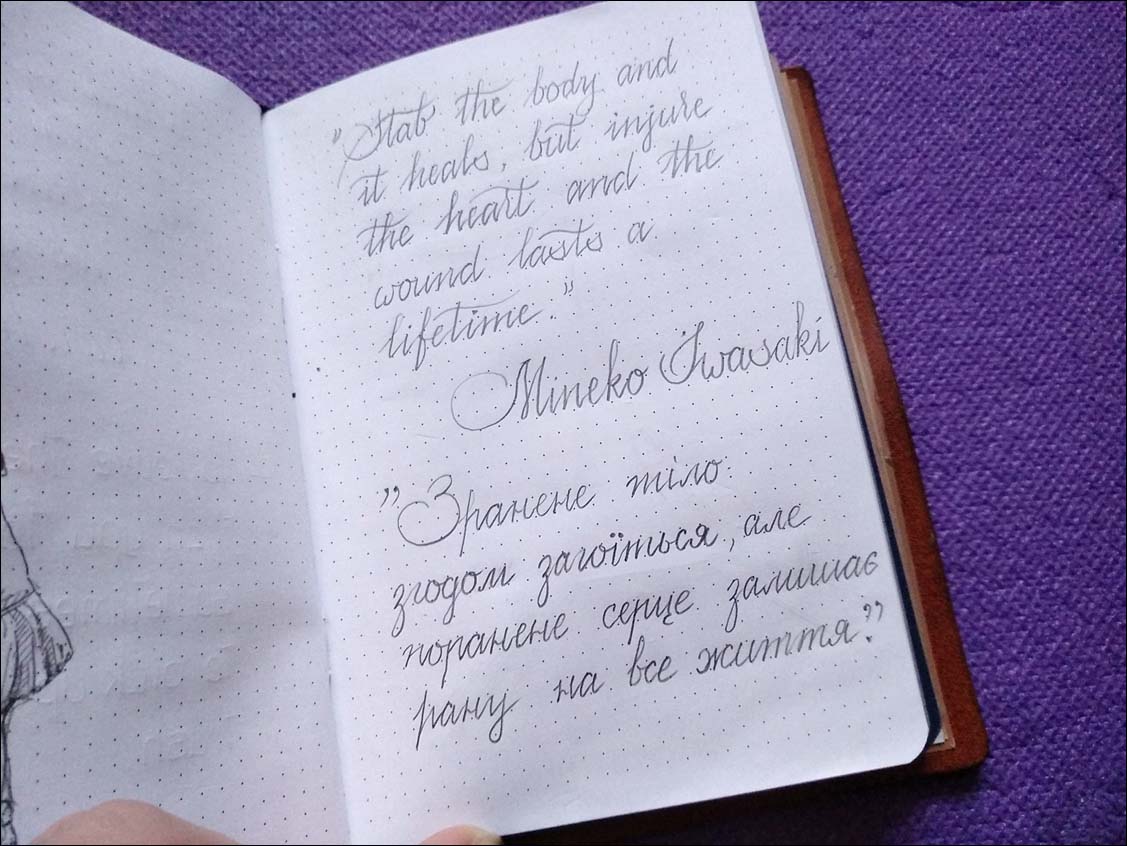 "Stab the body and
it heals, but injure
the heart and the
wound lasts a
lifetime."
Mineko Iwasaki
"Зранене тіло
згодом загоїться, але
поранене серце залишає
рану на все життя."